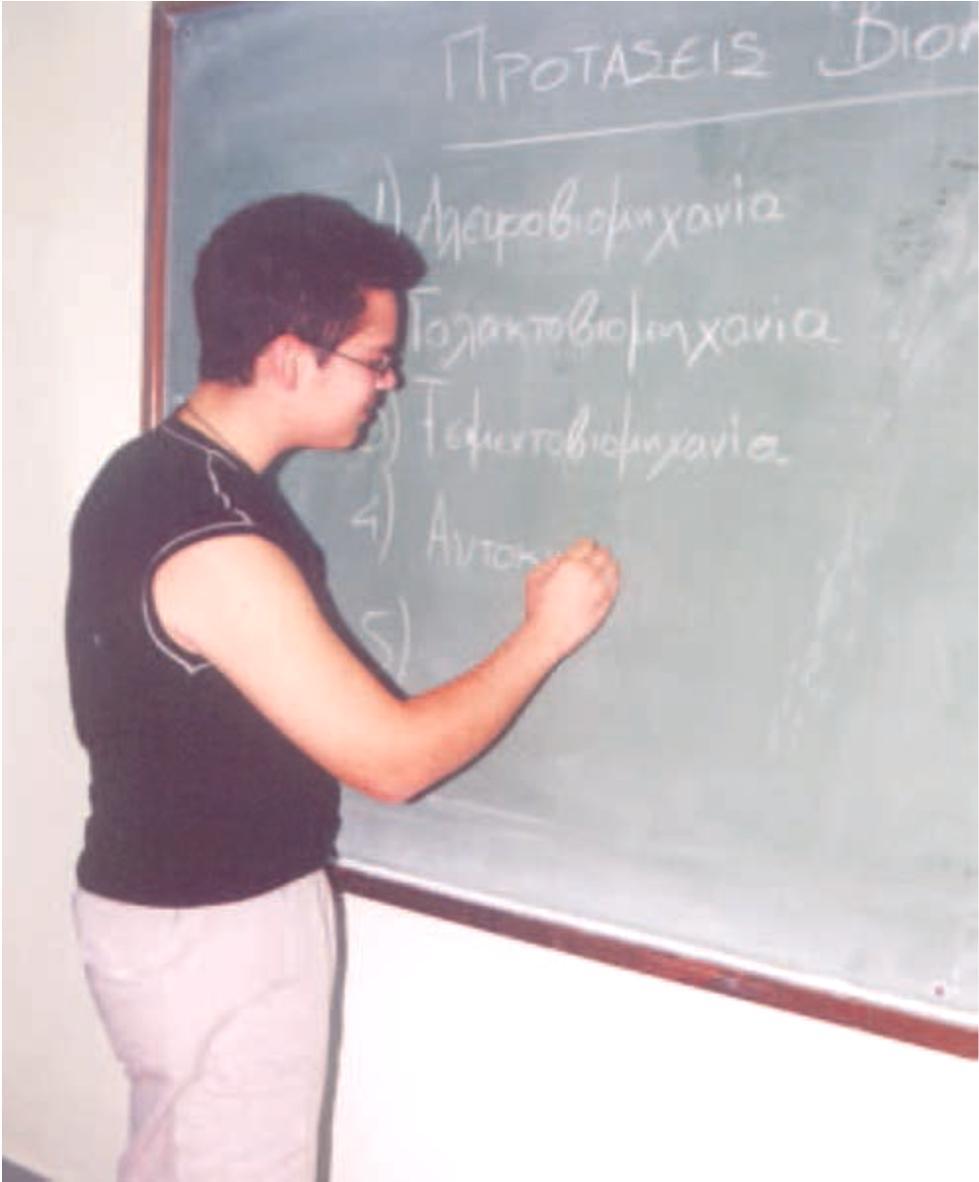 ΠΡΟΤΑΣΕΙΣ ΒΙΟΜ
1) Αλευροβιομηχανία
Γαλακτοβιομηχανία
3) Τσιμεντοβιομηχανία
4) Αυτοκ
5)